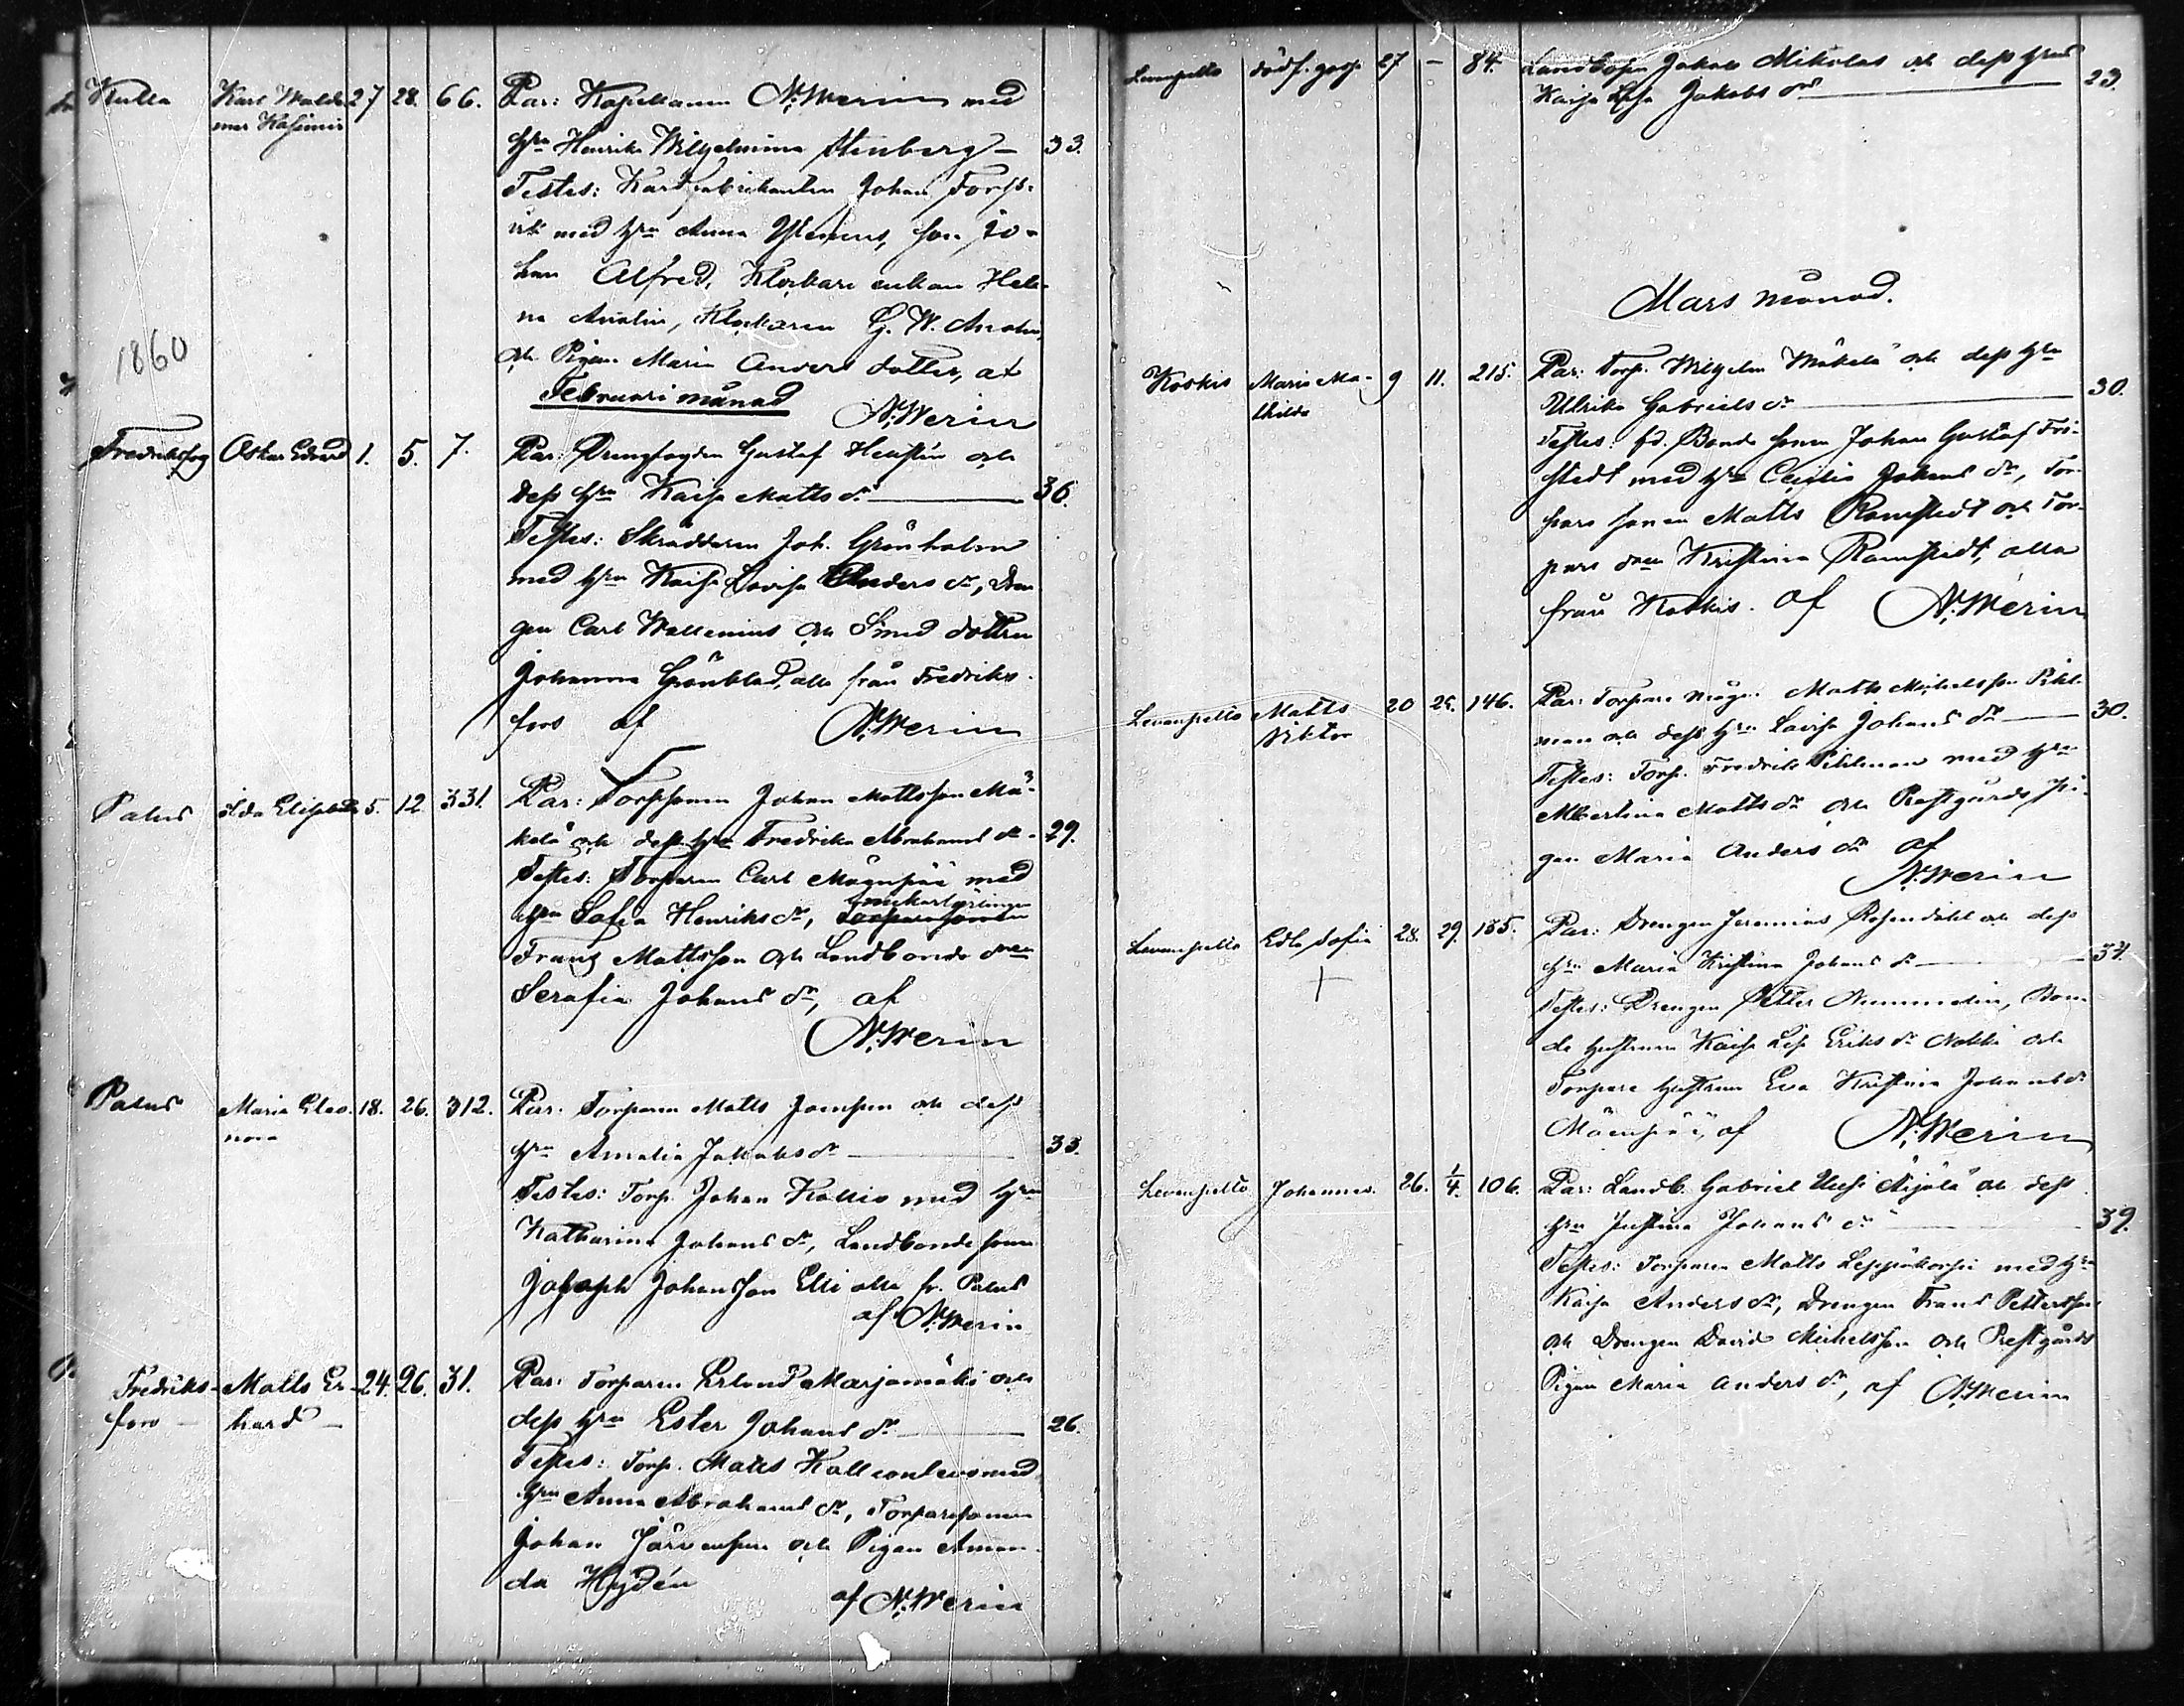 Kulla Karl Walde- 27 28. 66. Par: Kapellanen N. Werin med
mar Kasimir
hru Henrika Wilhelmina Stenberg — 33.
Testes: Kardfabrikanten Johan Forss-
med hru Anna son Jo-
han Alfred, Klockare enkan Hele-
na Analin, Klockaren G. W. Analin,
1860
och Pigan Maria Anders dotter, af
Februari månad N. Werin
Fredriksfors Oskar Edvard 1. 5. 7. Par: Drengfogden Gustaf och
dess hru Kaisa Matts dr — 36.
Testes: Skräddaren Joh. Grönholm
med hru Kaisa Lovisa Anders dr, Dren
gen Carl Wallenius och Smed dottren
Johanna Grönblad, alla från Fredriks-
fors af N. Werin
Palus Ida Elisabeth 5. 12. 331. Par: Torpsonen Johan Mattsson Mä-
kelä och dess hru Fredrika Abrahams dr - 29.
Testes: Torparen Carl Mäenpää med
hru Sofia Henriks dr,
Frans Mattsson och Landbonde dren
Serafia Johans dr, af
N. Werin
Palus Maria Eleo- 18. 26. 312. Par: Torparen Matts och dess
nora
hru Amalia Jakobs dr — 33.
Testes: Torp. Johan Kallio med hru
Katharina Johans dr, Landbonde sonen
Joseph Johansson Elli alla fr. Palus
af N. Werin
Fredriks- Matts Er- 24. 26. 31. Par: Torparen Erland Marjamäki och
fors — hard —
dess hru Ester Johans dr — 26.
Testes: Torp. Matts med
hru Anna Abrahams dr, Torparesonen
Johan Järvensuu och Pigan Aman-
da Hydén af N. Werin
Levanpelto dödf. goss 27 — 84. Landbon Jakob Mikolas och dess hrus
Kaisa Lisa Jakobs dr — 23.
Mars månad.
Koskis Maria Ma- 9 11. 215. Par: Torp. Wilhelm Mäkelä och dess hru
thilda
Ulrika Gabriels dr — 30.
Testes: fd. Bonde sonen Johan Gustaf Fri-
stedt med hru Cecilia Johans dr, Tor-
pare sonen Matts Ramstedt och Tor-
pare dren Kristina Ramstedt, alla
från Koskis. af N. Werin
Levanpelto Matts 20 25. 146. Par: Torpare mågen Matts Michelsson Pihl-
Viktor
man och dess hru Lovisa Johans dr — 30.
Testes: Torp. Fredrik Pihlman med hru
Albertina Matts dr och Prestgårds Pi-
gan Maria Anders dr af
N. Werin
Levanpelto Edla Sofia 28. 29. 155. Par: Drengen Jeremias Rosendahl och dess
hru Maria Kristina Johans dr — 34.
Testes: Drengen Petter Nummelin, Bon-
de hustrun Kaisa Lisa Eriks dr Nokki och
Torpare hustrun Eva Kristina Johans dr
Mäenpää, af N. Werin
Levanpelto Johannes. 26. 1/4. 106. Par: Landb. Gabriel Uusi Äijälä och dess
hru Justina Johans dr — 39.
Testes: Torparen Matts Leppäkorpi med hru
Kaisa Anders dr, Drengen Frans Pettersson
och Drengen David Michelsson och Prestgårds
Pigan Maria Anders dr, af N. Werin